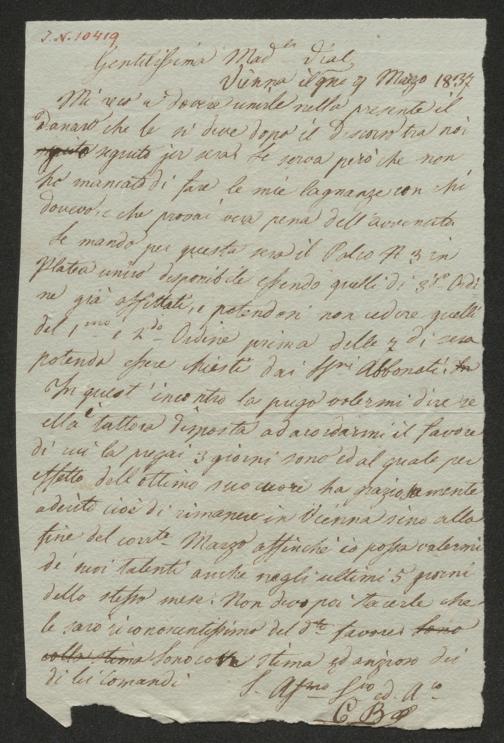 I. N. 10419
Gentilissima Mad.le Dial
Vienna il 9 Marzo 1837
Mi reco a dovere unirle nella presente il
danaro che le si deve dopo il discorso tra noi
seguito jer sera. Le serva però che non
ho mancato di fare le mie lagnanze con chi
dovevo, e che provai vera pena dell'avvenuto.
Le mando per questa sera il Palco N. 3 in
Platea unico disponibile essendo quelli di 3.zo Ordi
ne già affittati, e potendosi non cedere quelli
del 1.mo e 2.do Ordine prima delle 2 di sera
potendo essere chiesti dai Abbonati.
In quest'incontro la prego volermi dire se
ella è tuttora disposta ad accordarmi il favore
di cui la pregai 3 giorni sono ed al quale per
effetto dell'ottimo suo cuore ha graziosamente
aderito cioè di rimanere in Vienna sino alla
fine del corr.te Marzo affinché io possa valermi
de' suoi talenti anche negli ultimi 5 giorni
dello stesso mese. Non devo poi tacerle che
le sarò riconoscentissimo del d.to favore. Sono
colla stima Sono con stima ed ansioso dei
di lei Comandi
ed. A.co
C B